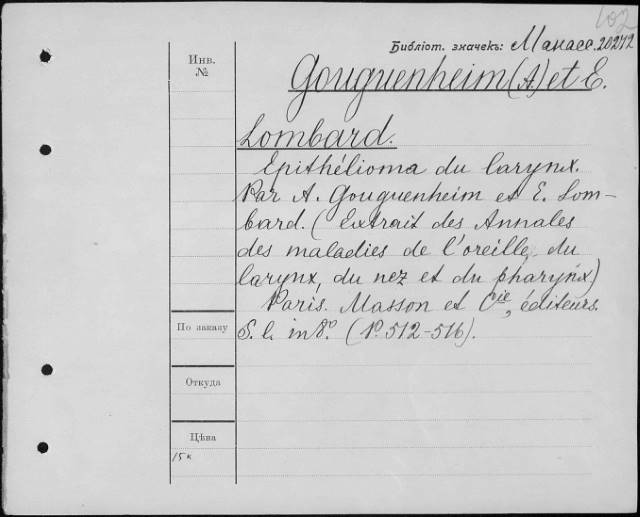 102
Библіот. значекъ: Манасс. 20272
Инв.
№
Gouguenheim (A.) et E.
Lombard.
Epithélioma du larynx.
Par A. Gouguenheim et E. Lom-
bard. (Extrait des Annales
des maladies de l'oreille, du
larynx, du nez et du pharynx)
Paris. Masson et Cie, éditeurs.
По заказу
S. l. in 8º. (P. 512-516).
Откуда
Цѣна
15к